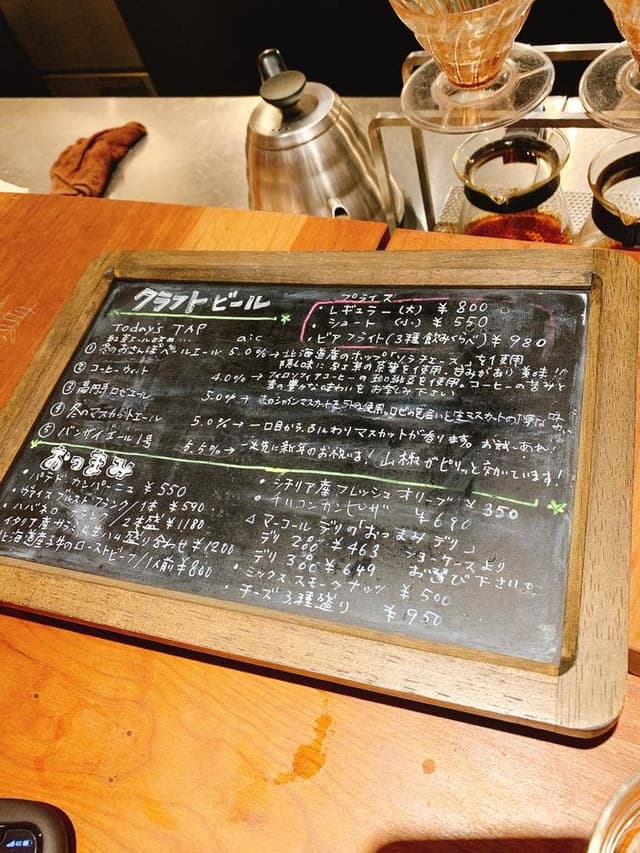 クラフトビール
プライス
・レギュラー(大) ¥800
・ショート(小) ¥550
・ビアフライト(3種飲みくらべ) ¥980
Today's TAP
alc
①冬のおさんぽペールエール 5.0%→北海道産のホップ「ソラチエース」を使用
隠し味に 茶葉を使用。甘みがあり美味!!
②コーヒーウィート 4.0%→フィロソフィアコーヒーの を使用。コーヒーの苦みと
麦の豊かな味わいをお楽しみ下さい
③高円寺ロゼエール 5.0%→
④冬のマスカットエール 5.0%→一口目からふんわりマスカットが香ります。お試しあれ!
⑤バンザイエール1号 5.5%→一足先に新年のお祝いを!山椒がピリッと効いています!
おつまみ
・パテドカンパーニュ ¥550
・ /1本 ¥590
・ハバネロ /2本盛 ¥1180
イタリア産サラミと生ハム盛り合わせ ¥1200
北海道産3牛のローストビーフ/1人前 ¥800
・シチリア産フレッシュオリーブ ¥350
・チリコンカンピザ ¥690
◁マーコールデリの「おつまみデリ」
デリ 2品 ¥463 ショーケースより
デリ 3品 ¥649 お選び下さい。
・ミックススモークナッツ ¥500
・チーズ3種盛り ¥950